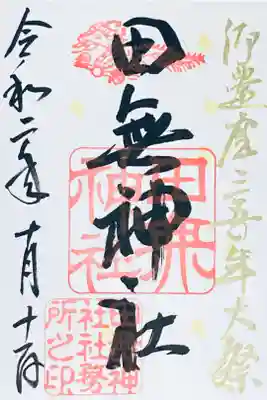 御遷座三
年大祭
田無神社
令和二年十月十一日
田無神社
田無神社社務所之印